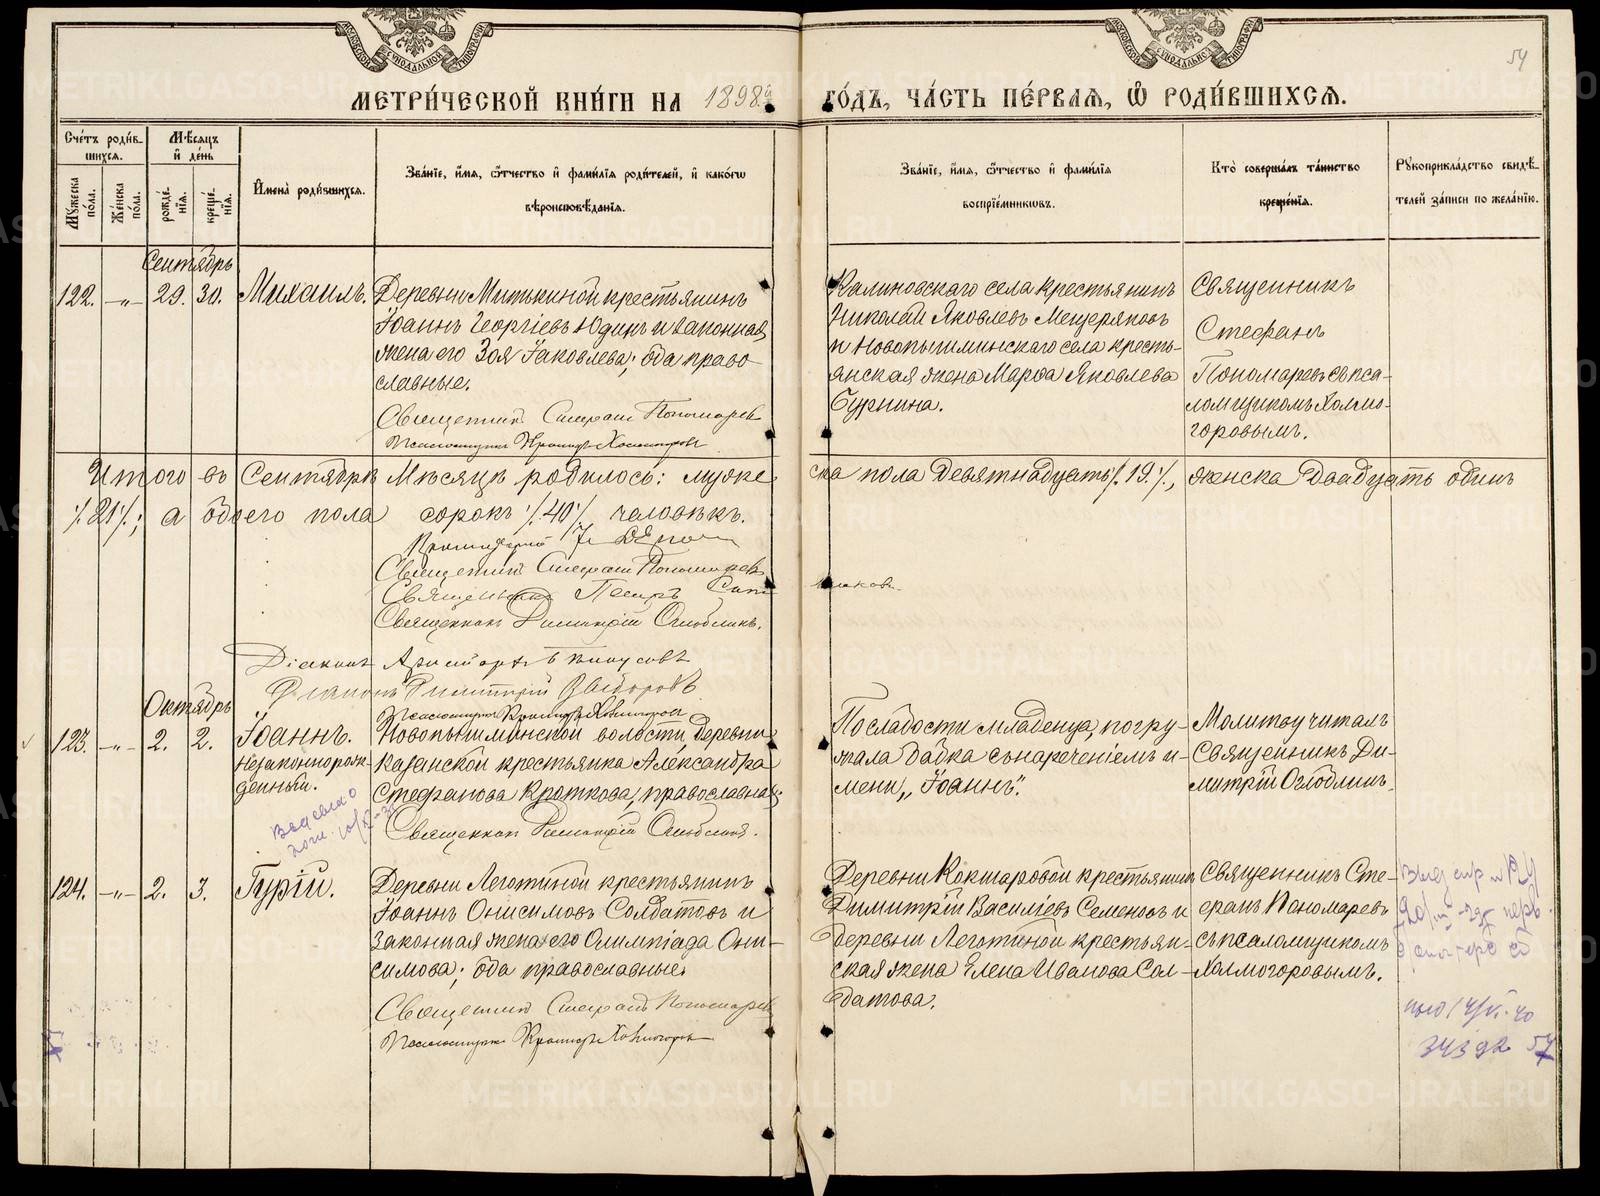 54
МЕТРИ́ЧЕСКОЙ КНИ́ГИ НА 1898й
ГО́ДЪ, ЧА́СТЬ ПЕ́РВАѦ, Ѽ РОДИ́ВШИХСѦ.
Сче́тъ роди́в-
шихсѧ.
Мꙋ́жеска по́ла.
Же́нска по́ла.
Мѣ́сѧцъ
и҆ де́нь
рожде́-
нїѧ.
креще́-
нїѧ.
И҆мена̀ роди́вшихсѧ.
Зва́нїе, и҆́мѧ, ѻ҆́тчество и҆ фами́лїѧ роди́телей, и҆ како́гѡ
вѣроисповѣ́данїѧ.
Зва́нїе, и҆́мѧ, ѻ҆́тчество и҆ фами́лїѧ
воспрїе́мникѡвъ.
Кто̀ соверша́лъ та́инство
креще́нїѧ.
Рꙋкоприкла́дство свидѣ́-
телей за́писи по жела́нїю.
Сентябрь
122. -"- 29. 30. Михаилъ.
Деревни Митькиной крестьянинъ
Іоаннъ Георгіевъ Юдинъ и законная
жена его Зоя Іаковлева; оба право-
славные.
Священник Стефан Пономарев
Псаломщик Холмогоров
Калиновскаго села крестьянинъ
Николай Яковлевъ Мещеряковъ
и Новопышминскаго села кресть-
янская жена Марѳа Яковлева
Бурнина.
Священникъ
Стефанъ
Пономаревъ съ пса-
ломщикомъ Холмо-
горовымъ.
Итого въ Сентябрѣ Мѣсяцѣ родилось: муже-
ска пола Девятнадцать /.19./, женска Двадцать одинъ
/.21./; а обоего пола сорокъ /.40./ человѣкъ.
Священник Стефан Пономарев
Священникъ Петръ
Священник Димитрій Оглоблинъ.
Діаконъ
Діаконъ Димитрій
Псаломщик Холмогоров
Октябрь
123. -"- 2. 2. Іоаннъ.
незаконнорож-
денный.
Новопышминской волости деревни
Казанской крестьянка Александра
Стефанова Кроткова, православная;
Священник Димитрій Оглоблинъ.
По слабости младенца, погру-
жала бабка съ нареченіемъ и-
мени „Іоаннъ".
Молитву читалъ
Священникъ Ди-
митрій Оглоблинъ.
124. -"- 2. 3. Гурій.
Деревни Леготиной крестьянинъ
Іоаннъ Онисимовъ Солдатовъ и
законная жена его Олимпіада Они-
симова; оба православные.
Священник Стефан Пономарев
Псаломщик Холмогоров
Деревни Кокшаровой крестьянинъ
Димитрій Василіевъ Семеновъ и
деревни Леготиной крестьян-
ская жена Елена Иванова Сол-
датова.
Священникъ Сте-
фанъ Пономаревъ
съ псаломщикомъ
Холмогоровымъ.
METRIKI.GASO-URAL.RU